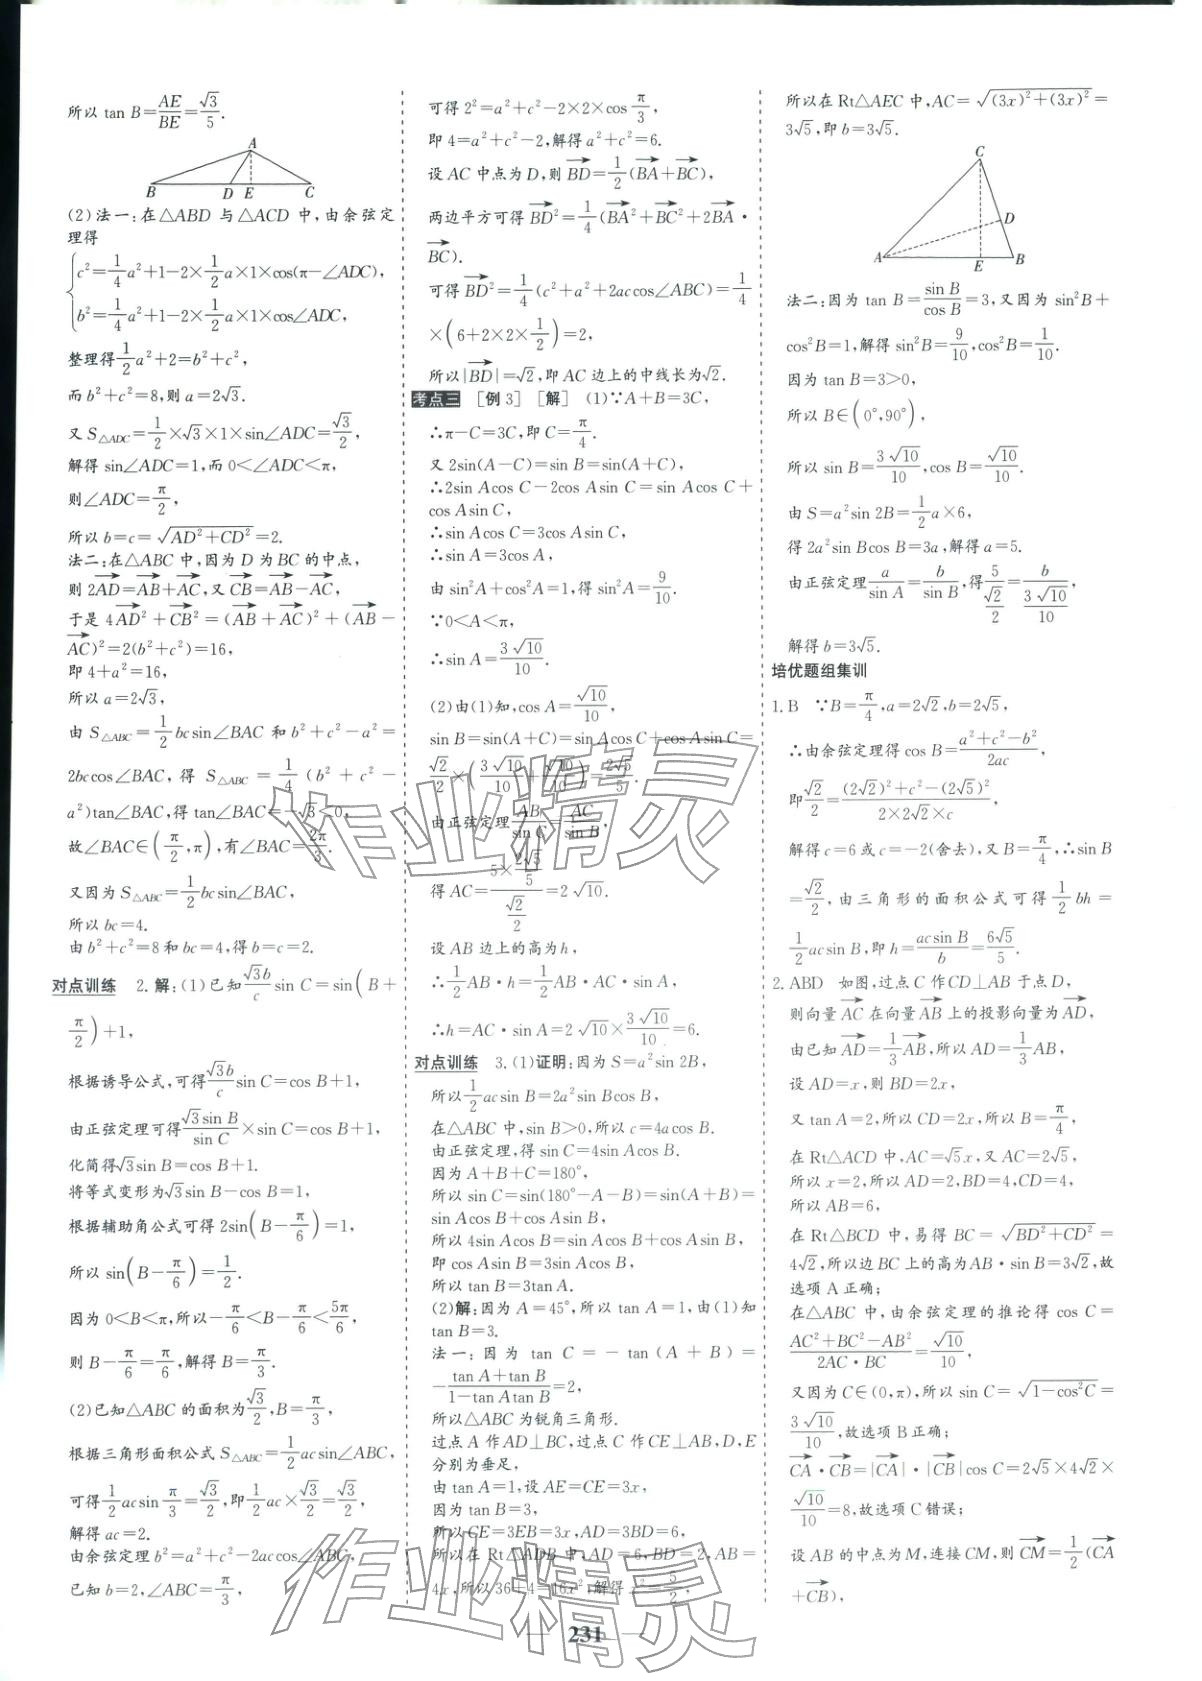 所以 tan B=AE/BE=√3/5.
A
B D E C
(2)法一:在△ABD 与△ACD 中,由余弦定
理得
c²=1/4a²+1-2×1/2a×1×cos(π-∠ADC),
b²=1/4a²+1-2×1/2a×1×cos∠ADC,
整理得1/2a²+2=b²+c²,
而 b²+c²=8,则 a=2√3.
又 S△ADC=1/2×√3×1×sin∠ADC=√3/2,
解得 sin∠ADC=1,而 0<∠ADC<π,
则∠ADC=π/2,
所以 b=c=√(AD²+CD²)=2.
法二:在△ABC 中,因为 D 为 BC 的中点,
则 2AD→=AB→+AC→,又 CB→=AB→-AC→,
于是 4AD→²+CB→²=(AB→+AC→)²+(AB→-
AC→)²=2(b²+c²)=16,
即 4+a²=16,
所以 a=2√3,
由 S△ABC=1/2bcsin∠BAC 和 b²+c²-a²=
2bccos∠BAC,得 S△ABC=1/4(b²+c²-
a²)tan∠BAC,得 tan∠BAC=-√3<0,
故∠BAC∈(π/2,π),有∠BAC=2π/3.
又因为 S△ABC=1/2bcsin∠BAC,
所以 bc=4.
由 b²+c²=8 和 bc=4,得 b=c=2.
对点训练 2.解:(1)已知√3b/c sin C=sin(B+
π/2)+1,
根据诱导公式,可得√3b/c sin C=cos B+1,
由正弦定理可得√3sin B/sin C×sin C=cos B+1,
化简得√3sin B=cos B+1.
将等式变形为√3sin B-cos B=1,
根据辅助角公式可得 2sin(B-π/6)=1,
所以 sin(B-π/6)=1/2.
因为 0<B<π,所以-π/6<B-π/6<5π/6,
则 B-π/6=π/6,解得 B=π/3.
(2)已知△ABC 的面积为√3/2,B=π/3,
根据三角形面积公式 S△ABC=1/2acsin∠ABC,
可得1/2acsin π/3=√3/2,即1/2ac×√3/2=√3/2,
解得 ac=2.
由余弦定理 b²=a²+c²-2accos∠ABC,
已知 b=2,∠ABC=π/3,
可得 2²=a²+c²-2×2×cos π/3,
即 4=a²+c²-2,解得 a²+c²=6.
设 AC 中点为 D,则 BD→=1/2(BA→+BC→),
两边平方可得 BD→²=1/4(BA→²+BC→²+2BA→·
BC→).
可得 BD→²=1/4(c²+a²+2accos∠ABC)=1/4
×(6+2×2×1/2)=2,
所以|BD→|=√2,即 AC 边上的中线长为√2.
考点三 [例 3] [解] (1)∵A+B=3C,
∴π-C=3C,即 C=π/4.
又 2sin(A-C)=sin B=sin(A+C),
∴2sin Acos C-2cos Asin C=sin Acos C+
cos Asin C,
∴sin Acos C=3cos Asin C,
∴sin A=3cos A,
由 sin²A+cos²A=1,得 sin²A=9/10.
∵0<A<π,
∴sin A=3√10/10.
(2)由(1)知,cos A=√10/10,
sin B=sin(A+C)=sin Acos C+cos Asin C=
√2/2×(3√10/10+√10/10)=2√5/5.
由正弦定理AB/sin C=AC/sin B,
得 AC=(5×2√5/5)/(√2/2)=2√10.
设 AB 边上的高为 h,
∴1/2AB·h=1/2AB·AC·sin A,
∴h=AC·sin A=2√10×3√10/10=6.
对点训练 3.(1)证明:因为 S=a²sin 2B,
所以1/2acsin B=2a²sin Bcos B,
在△ABC 中,sin B>0,所以 c=4acos B.
由正弦定理,得 sin C=4sin Acos B.
因为 A+B+C=180°,
所以 sin C=sin(180°-A-B)=sin(A+B)=
sin Acos B+cos Asin B,
所以 4sin Acos B=sin Acos B+cos Asin B,
即 cos Asin B=3sin Acos B,
所以 tan B=3tan A.
(2)解:因为 A=45°,所以 tan A=1,由(1)知
tan B=3.
法一:因为 tan C=-tan(A+B)=
-(tan A+tan B)/(1-tan Atan B)=2,
所以△ABC 为锐角三角形.
过点 A 作 AD⊥BC,过点 C 作 CE⊥AB,D,E
分别为垂足,
由 tan A=1,设 AE=CE=3x,
因为 tan B=3,
所以 CE=3EB=3x,AD=3BD=6,
所以在 Rt△ADB 中,AD=6,BD=2,AB=
4x,所以 36+4=16x²,解得 x²=5/2,
所以在 Rt△AEC 中,AC=√((3x)²+(3x)²)=
3√5,即 b=3√5.
C
D
A E B
法二:因为 tan B=sin B/cos B=3,又因为 sin²B+
cos²B=1,解得 sin²B=9/10,cos²B=1/10.
因为 tan B=3>0,
所以 B∈(0°,90°),
所以 sin B=3√10/10,cos B=√10/10.
由 S=a²sin 2B=1/2a×6,
得 2a²sin Bcos B=3a,解得 a=5.
由正弦定理a/sin A=b/sin B,得5/(√2/2)=b/(3√10/10),
解得 b=3√5.
培优题组集训
1.B ∵B=π/4,a=2√2,b=2√5,
∴由余弦定理得 cos B=(a²+c²-b²)/2ac,
即√2/2=((2√2)²+c²-(2√5)²)/(2×2√2×c),
解得 c=6 或 c=-2(舍去),又 B=π/4,∴sin B
=√2/2,由三角形的面积公式可得1/2bh=
1/2acsin B,即 h=acsin B/b=6√5/5.
2.ABD 如图,过点 C 作 CD⊥AB 于点 D,
则向量AC→在向量AB→上的投影向量为AD→,
由已知AD→=1/3AB→,所以 AD=1/3AB,
设 AD=x,则 BD=2x,
又 tan A=2,所以 CD=2x,所以 B=π/4,
在 Rt△ACD 中,AC=√5x,又 AC=2√5,
所以 x=2,所以 AD=2,BD=4,CD=4,
所以 AB=6,
在 Rt△BCD 中,易得 BC=√(BD²+CD²)=
4√2,所以边 BC 上的高为 AB·sin B=3√2,故
选项 A 正确;
在△ABC 中,由余弦定理的推论得 cos C=
(AC²+BC²-AB²)/(2AC·BC)=√10/10,
又因为 C∈(0,π),所以 sin C=√(1-cos²C)=
3√10/10,故选项 B 正确;
CA→·CB→=|CA→|·|CB→|cos C=2√5×4√2×
√10/10=8,故选项 C 错误;
设 AB 的中点为 M,连接 CM,则 CM→=1/2(CA→
+CB→),
作业精灵
作业精灵
231